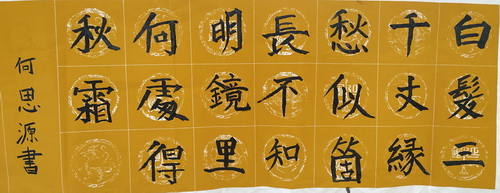 白髮三
千丈緣
愁似箇
長不知
明鏡里
何處得
秋霜
何思源書